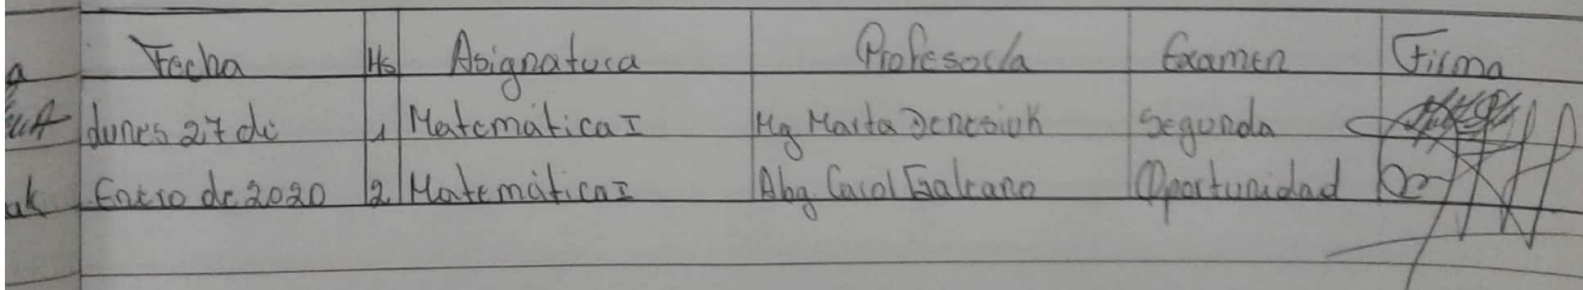 Fecha Hs Asignatura Profesor/a Examen Firma
Lunes 27 de 1 Matemática I Mg Marta Denesiuk Segunda
Enero de 2020 2 Matemática I Abg Carol Galeano Oportunidad